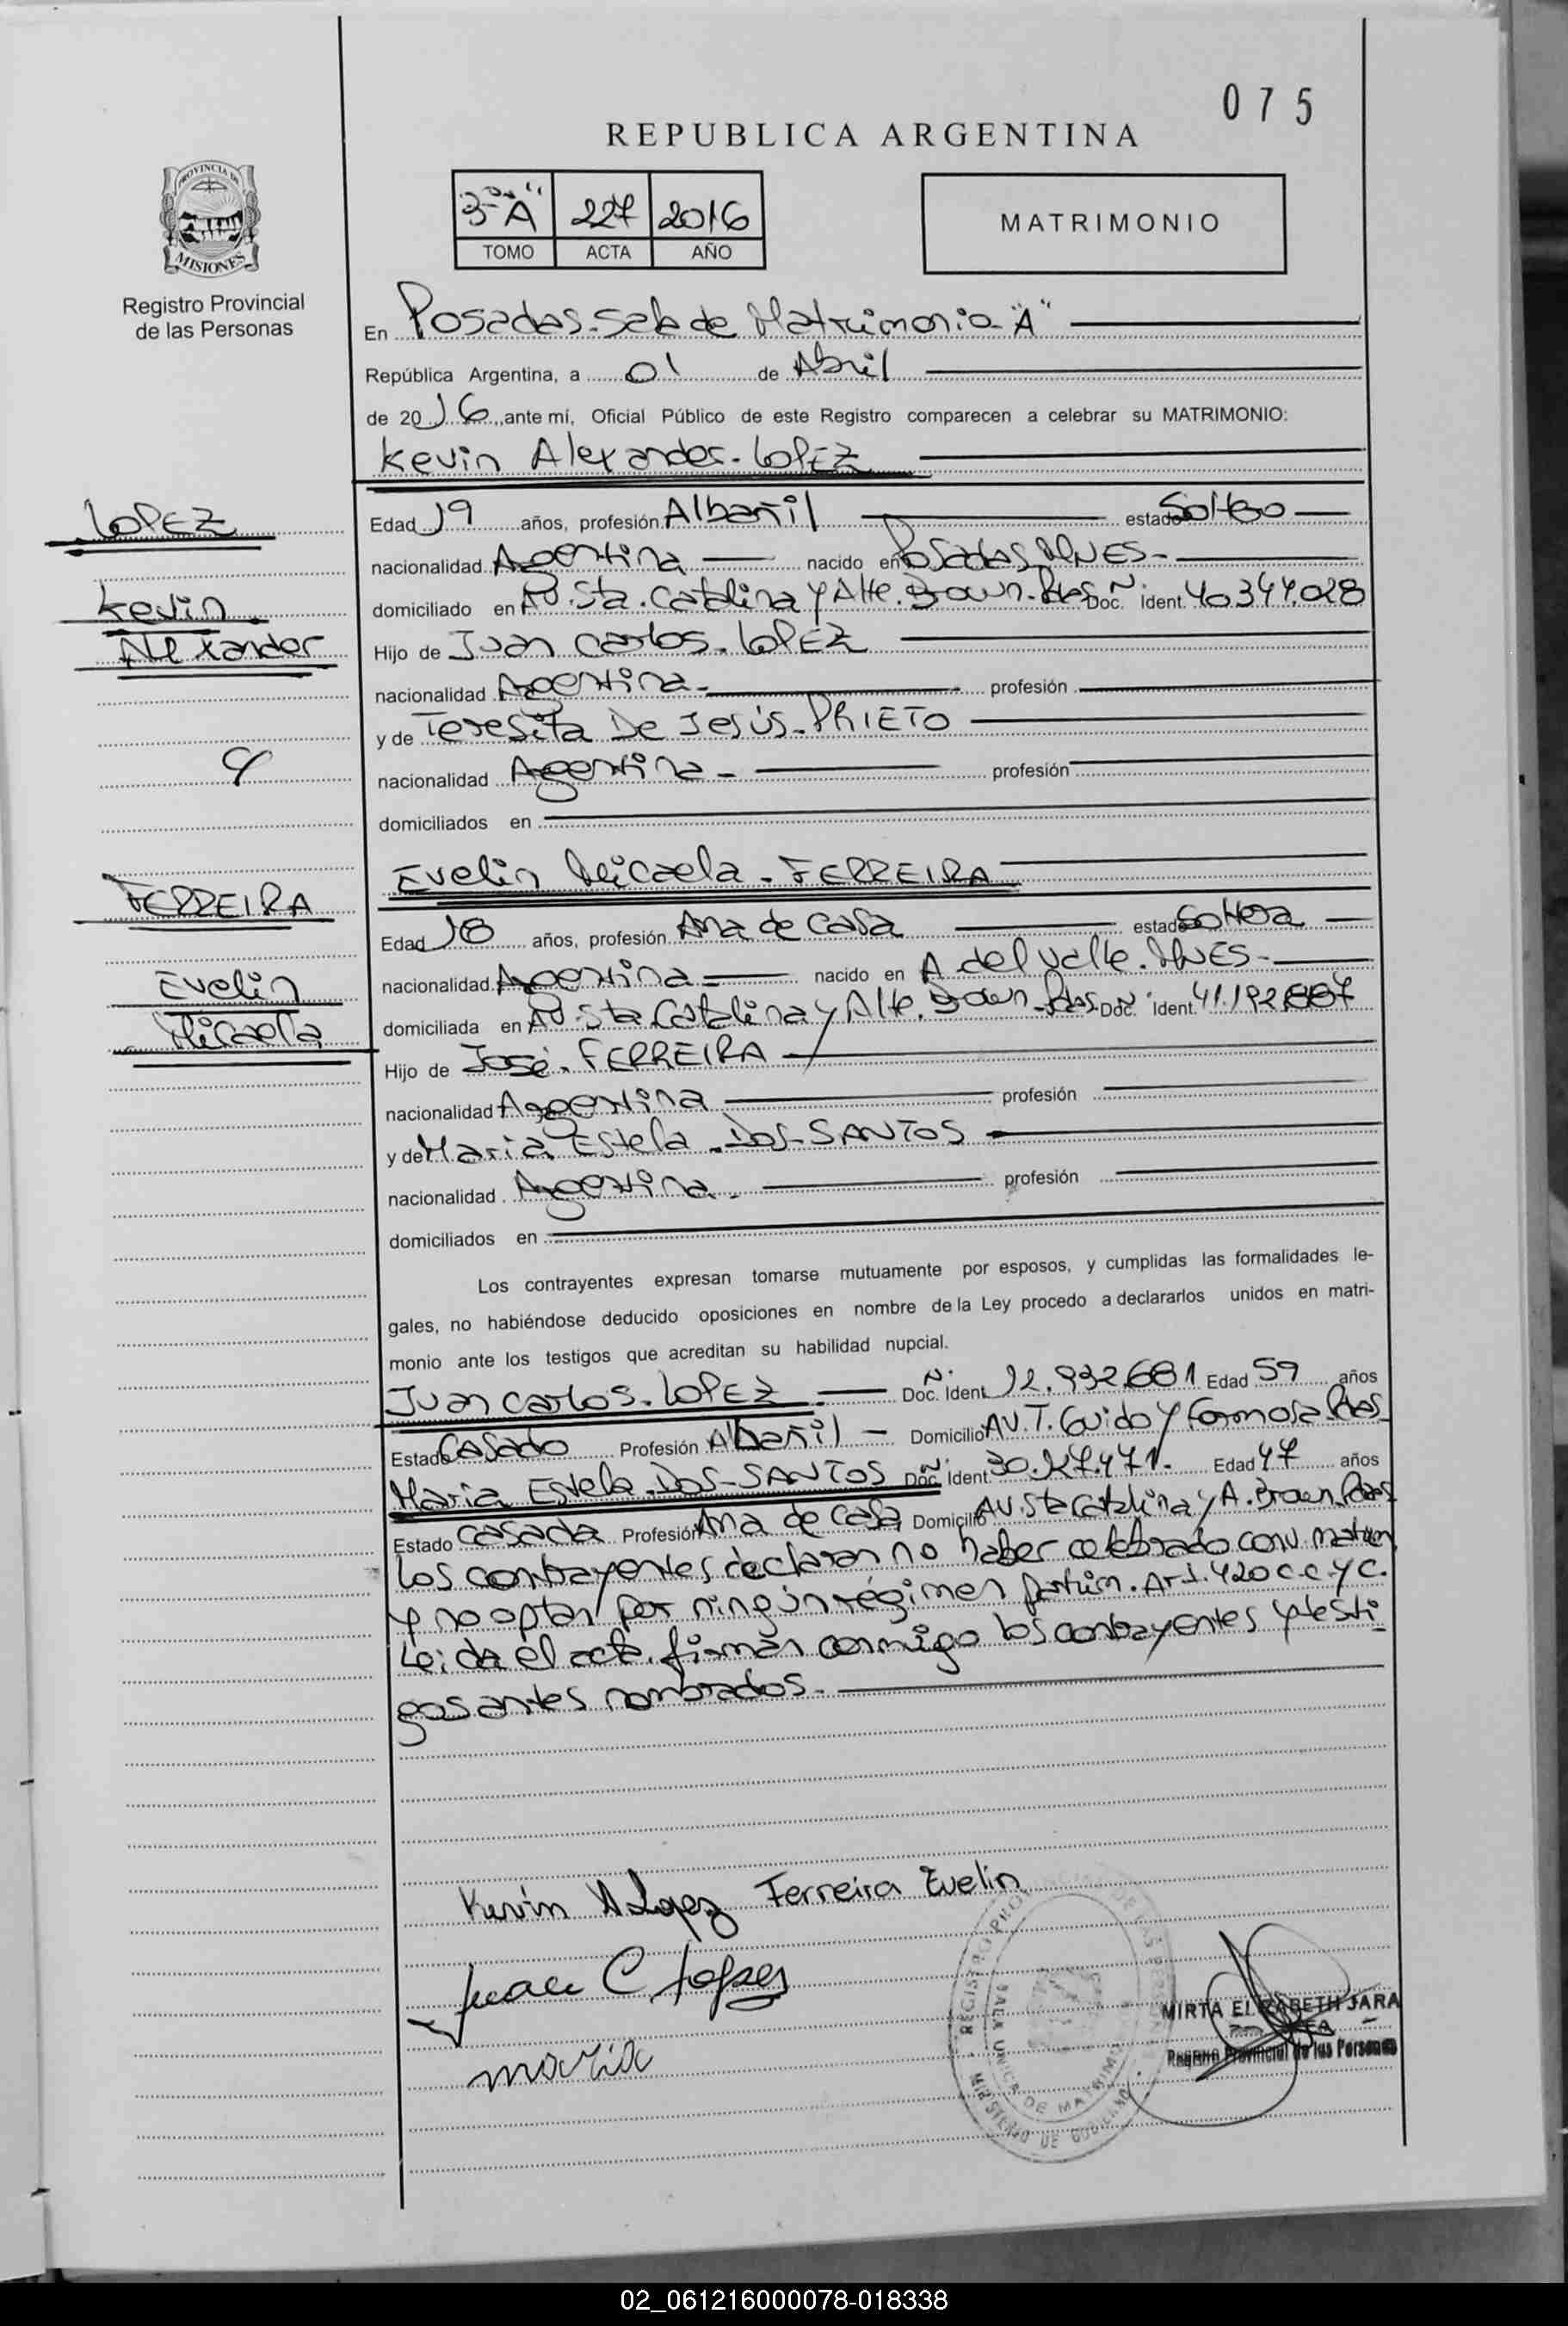 075
REPUBLICA ARGENTINA
3º "A" 227 2016
TOMO ACTA AÑO
MATRIMONIO
PROVINCIA DE
MISIONES
Registro Provincial
de las Personas
En Posadas-Sala de Matrimonio "A"
República Argentina, a 01 de Abril
de 2016, ante mí, Oficial Público de este Registro comparecen a celebrar su MATRIMONIO:
Kevin Alexander-LOPEZ
LOPEZ
Kevin
Alexander
Edad 19 años, profesión Albañil estado Soltero
nacionalidad Argentina nacido en Posadas, MNES-
domiciliado en Av. Sta. Catalina y Alte. Brown-Pdas Doc. Ident. 40.344.028
Hijo de Juan Carlos-LOPEZ
nacionalidad Argentina- profesión
y de Teresita De Jesús-PRIETO
nacionalidad Argentina- profesión
domiciliados en
Evelin Micaela-FERREIRA
FERREIRA
Evelin
Micaela
Edad 18 años, profesión Ama de Casa estado Soltera
nacionalidad Argentina nacido en A del Valle. MNES-
domiciliada en Av. Sta Catalina y Alte. Brown-Pdas Doc. Ident. 41.192.887
Hijo de José-FERREIRA
nacionalidad Argentina profesión
y de Maria Estela-DOS-SANTOS
nacionalidad Argentina- profesión
domiciliados en
Los contrayentes expresan tomarse mutuamente por esposos, y cumplidas las formalidades le-
gales, no habiéndose deducido oposiciones en nombre de la Ley procedo a declararlos unidos en matri-
monio ante los testigos que acreditan su habilidad nupcial.
Juan Carlos-LOPEZ Doc. Ident 12.932.681 Edad 59 años
Estado Casado Profesión Albañil- Domicilio AV. T. Guido y Formosa Pdas-
Maria Estela-DOS-SANTOS Doc. Ident. Edad 47 años
Estado Casada Profesión Ama de Casa Domicilio AV. Sta Catalina y A. Brown. Pdas
Los contrayentes declaran no haber celebrado conv. matrim
y no optan por ningún régimen patrim. Art. 420 C.C. y C.
Leída el acta, firman conmigo los contrayentes y testi
gos antes nombrados-
Kevin A Lopez Ferreira Evelin
Juan C Lopez
maria
REGISTRO PROVINCIAL DE LAS PERSONAS
SALA UNICA DE MATRIMONIO
MINISTERIO DE GOBIERNO
MIRTA ELIZABETH JARA
Registro Provincial de las Personas
02_061216000078-018338